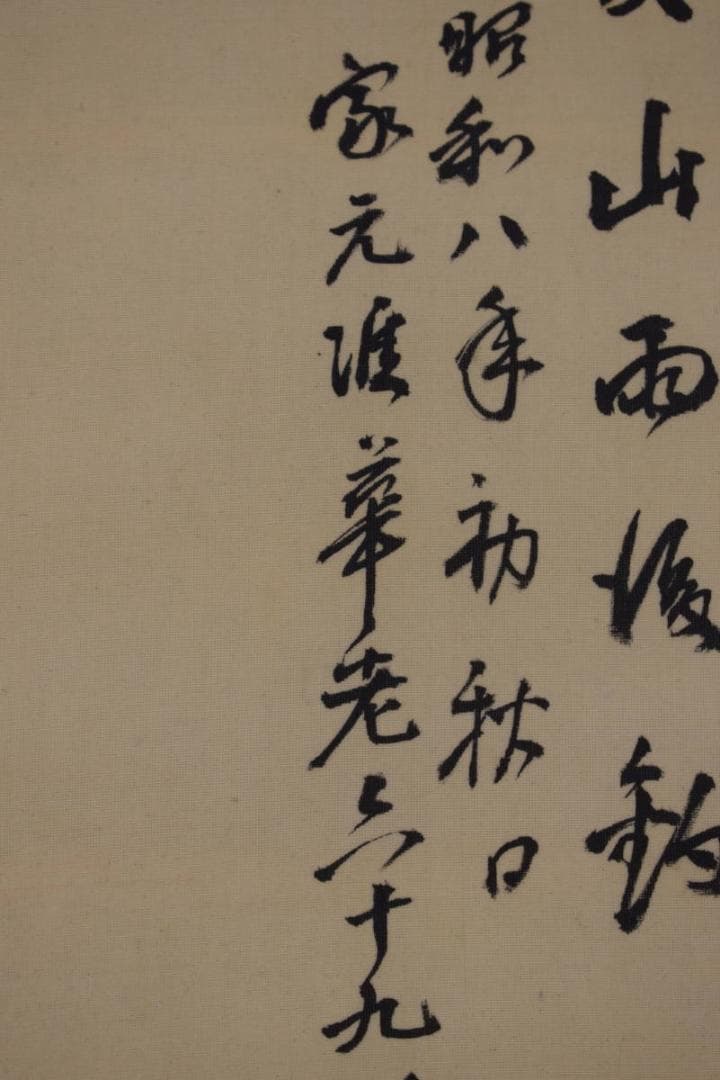 山雨後釣
昭和八年初秋日
家元準華老六十九